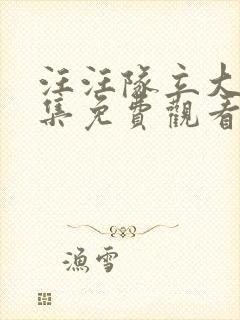 汪汪隊立大
集免費觀看
漁雪